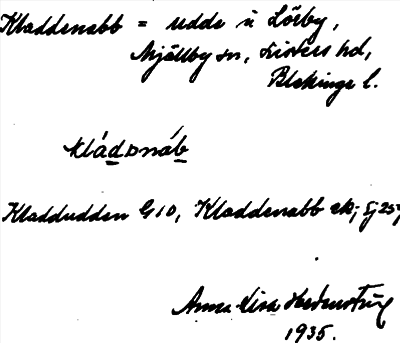 Kladdenabb = udde i Lörby,
Mjällby sn, Listers hd,
Blekinge l.
kládənáb
Kladdudden G10, Kladdenabb ek; Ej 257
Anna-Lisa
1935.